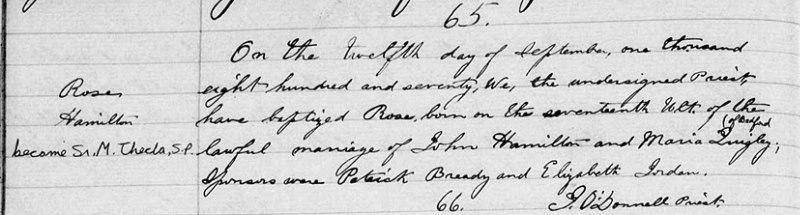 65.
On the twelfth day of September, one thousand
eight hundred and seventy, We, the undersigned Priest
have baptized Rose, born on the seventeenth Ult. of the
(of Bedford
lawful marriage of John Hamilton and Maria Quigley;
Sponsors were Patrick Bready and Elizabeth Jordan.
Rose
Hamilton
become Sr. M. Thecla, S.P.
66.
J. O'Donnell Priest.